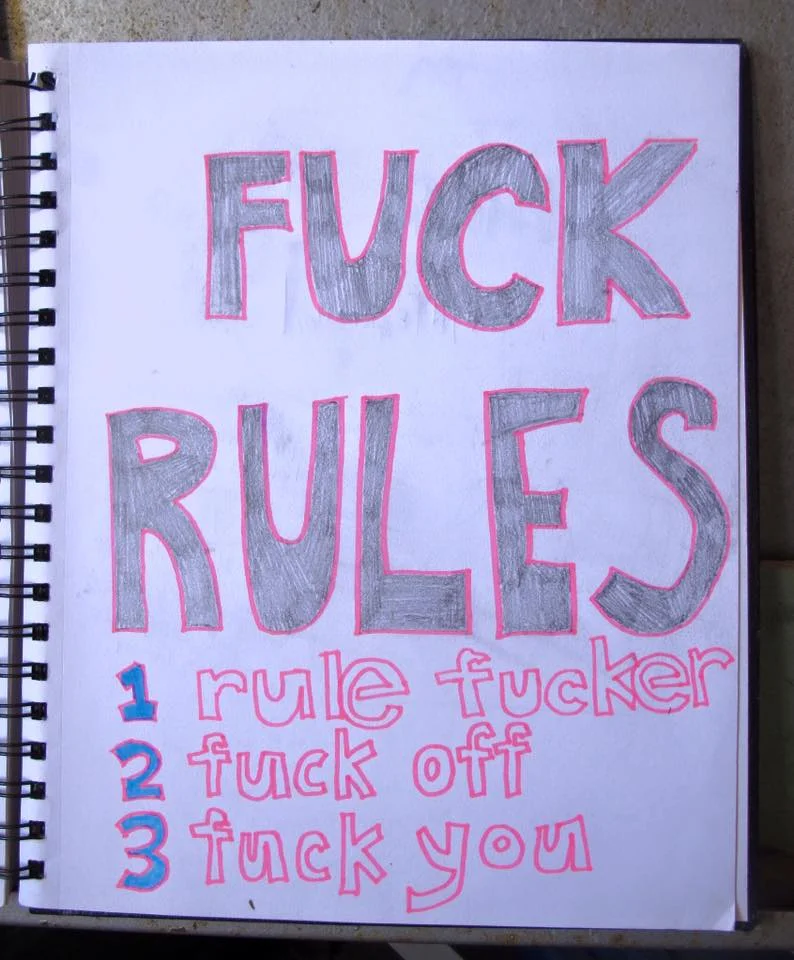 FUCK
RULES
1 rule fucker
2 fuck off
3 fuck you